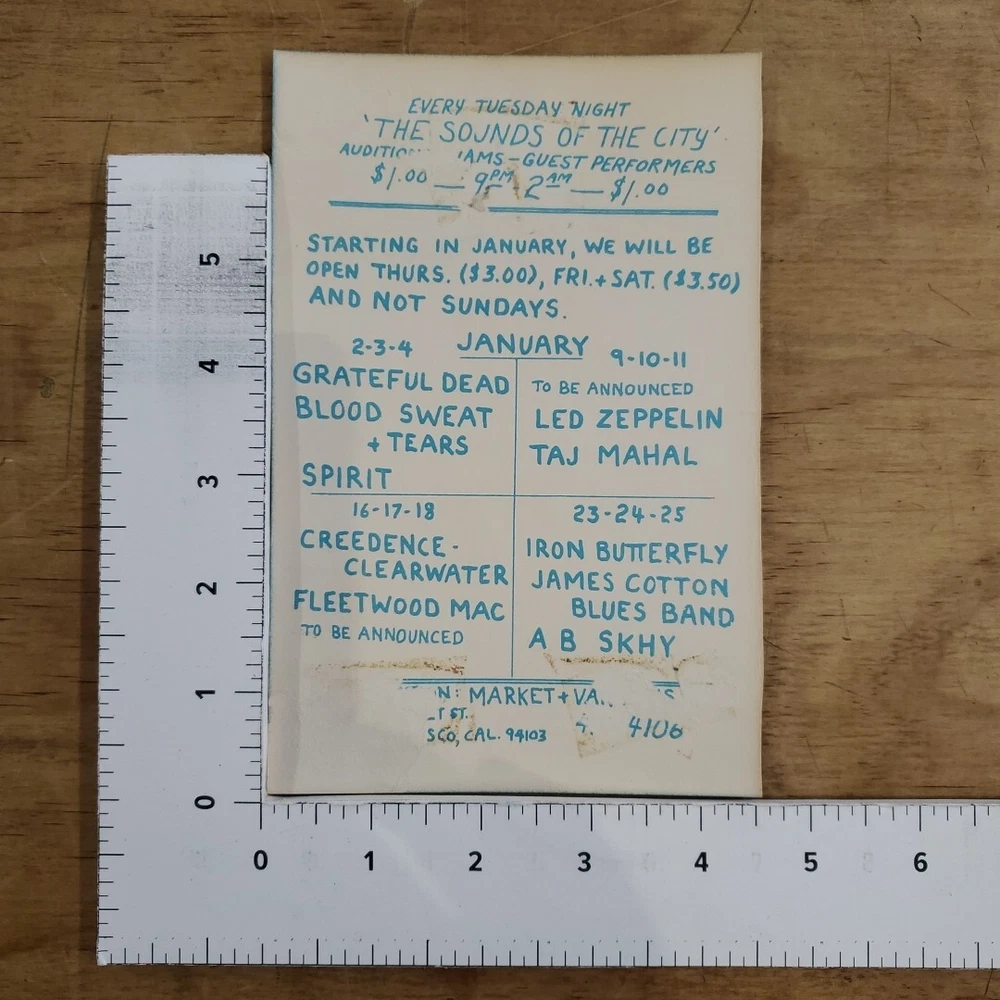 EVERY TUESDAY NIGHT
'THE SOUNDS OF THE CITY'
AMS - GUEST PERFORMERS
$1.00 — 9PM 2AM — $1.00
STARTING IN JANUARY, WE WILL BE
OPEN THURS. ($3.00), FRI. + SAT. ($3.50)
AND NOT SUNDAYS.
JANUARY
2-3-4
GRATEFUL DEAD
BLOOD SWEAT
+ TEARS
SPIRIT
9-10-11
TO BE ANNOUNCED
LED ZEPPELIN
TAJ MAHAL
16-17-18
CREEDENCE-
CLEARWATER
FLEETWOOD MAC
TO BE ANNOUNCED
23-24-25
IRON BUTTERFLY
JAMES COTTON
BLUES BAND
A B SKHY
N: MARKET + VA
T ST.
SCO, CAL. 94103
4106
5
4
3
2
1
0
0 1 2 3 4 5 6